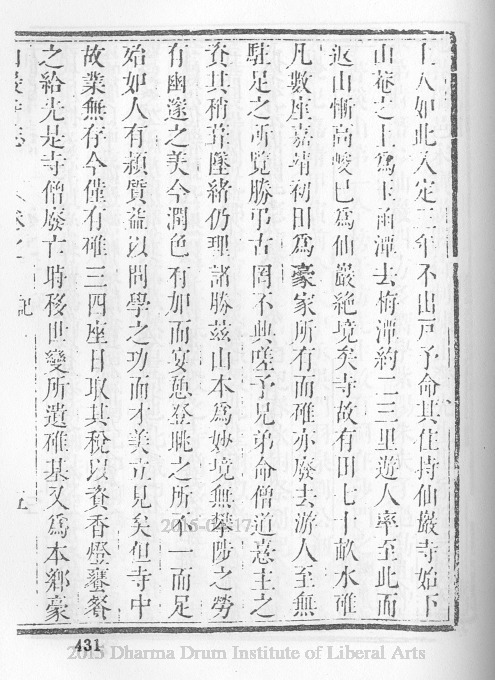 上人如此入定三年不出戶予命其住持仙巖寺始下
山菴之上爲玉函潭去梅潭約二三里遊人率至此而
返山慚高峻已爲仙巖絕境矣寺故有田七十畝水碓
凡數座嘉靖初田爲豪家所有而碓亦廢去游人至無
駐足之所覽勝弔古罔不興嗟予兄弟命僧道憙主之
資其稍葺墜緒仍理諸勝茲山本爲妙境無攀陟之勞
有幽邃之美今潤色有加而宴憩登眺之所不一而足
始如人有穎質益以問學之功而才美立見矣但寺中
故業無存今僅有碓三四座日取其稅以資香燈饔餐
之給先是寺僧廢亡時移世變所遺碓基又爲本鄉豪
仙巖寺志 卷之 記 五
431
2015-04-17
2015 Dharma Drum Institute of Liberal Arts